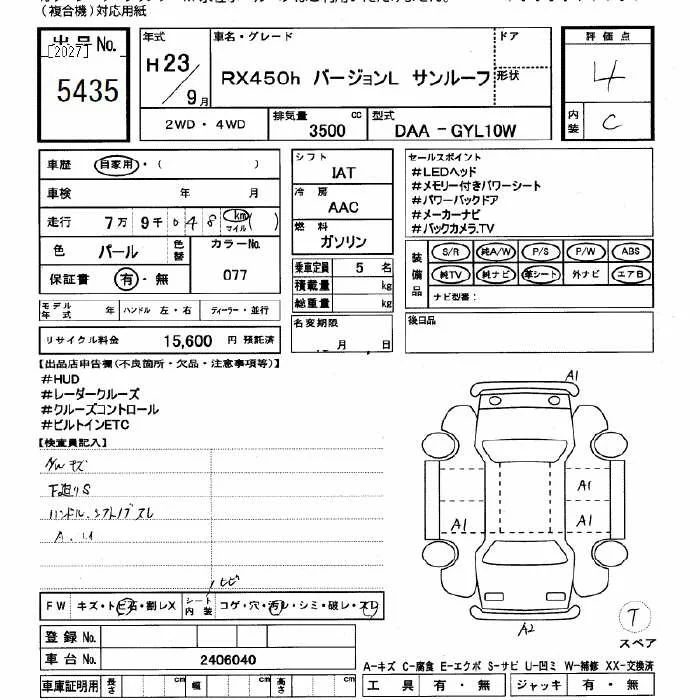 （複合機）対応用紙
出品No.
[2027]
5435
年式
H23/9月
車名・グレード
RX450h バージョンL サンルーフ
ドア
形状
2WD・4WD
排気量
3500 cc
型式
DAA-GYL10W
評価点
4
内装
C
車歴 自家用・（　）
車検 年 月
走行 7万9千048 km マイル（ ）
色 パール 色替
カラーNo.
077
保証書 有・無
モデル年式 年 ハンドル 左・右 ディーラー・並行
リサイクル料金 15,600 円 預託済
シフト
IAT
冷房
AAC
燃料
ガソリン
乗車定員 5 名
積載量 kg
総重量 kg
名変期限
月 日
セールスポイント
#LEDヘッド
#メモリー付きパワーシート
#パワーバックドア
#メーカーナビ
#バックカメラ.TV
装備品
S/R 純A/W P/S P/W ABS
純TV 純ナビ 革シート 外ナビ エアB
ナビ型番：
後日品
【出品店申告欄(不良箇所・欠品・注意事項等)】
#HUD
#レーダークルーズ
#クルーズコントロール
#ビルトインETC
【検査員記入】
キズ
下廻りS
ハンドル、シフトノブスレ
A.U
ヒビ
FW キズ・トビ石・割レX
シート内装 コゲ・穴・汚レ・シミ・破レ・スレ
登録No.
車台No. 2406040
車庫証明用 長さ cm 幅 cm 高さ cm
A1
A1
A1
A1
A2
T
スペア
A-キズ C-腐食 E-エクボ S-サビ U-凹ミ W-補修 XX-交換済
工具 有・無 ジャッキ 有・無